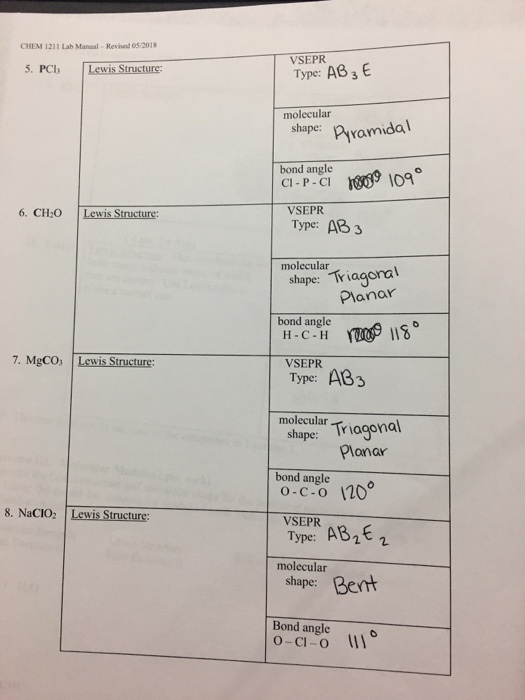 CHEM 1211 Lab Manual - Revised 05/2018
5. PCl₃
Lewis Structure:
VSEPR
Type: AB₃E
molecular
shape: Pyramidal
bond angle
Cl - P - Cl 109°
6. CH₂O
Lewis Structure:
VSEPR
Type: AB₃
molecular
shape: Triagonal
Planar
bond angle
H - C - H 118°
7. MgCO₃
Lewis Structure:
VSEPR
Type: AB₃
molecular
shape: Triagonal
Planar
bond angle
O - C - O 120°
8. NaClO₂
Lewis Structure:
VSEPR
Type: AB₂E₂
molecular
shape: Bent
Bond angle
O - Cl - O 111°